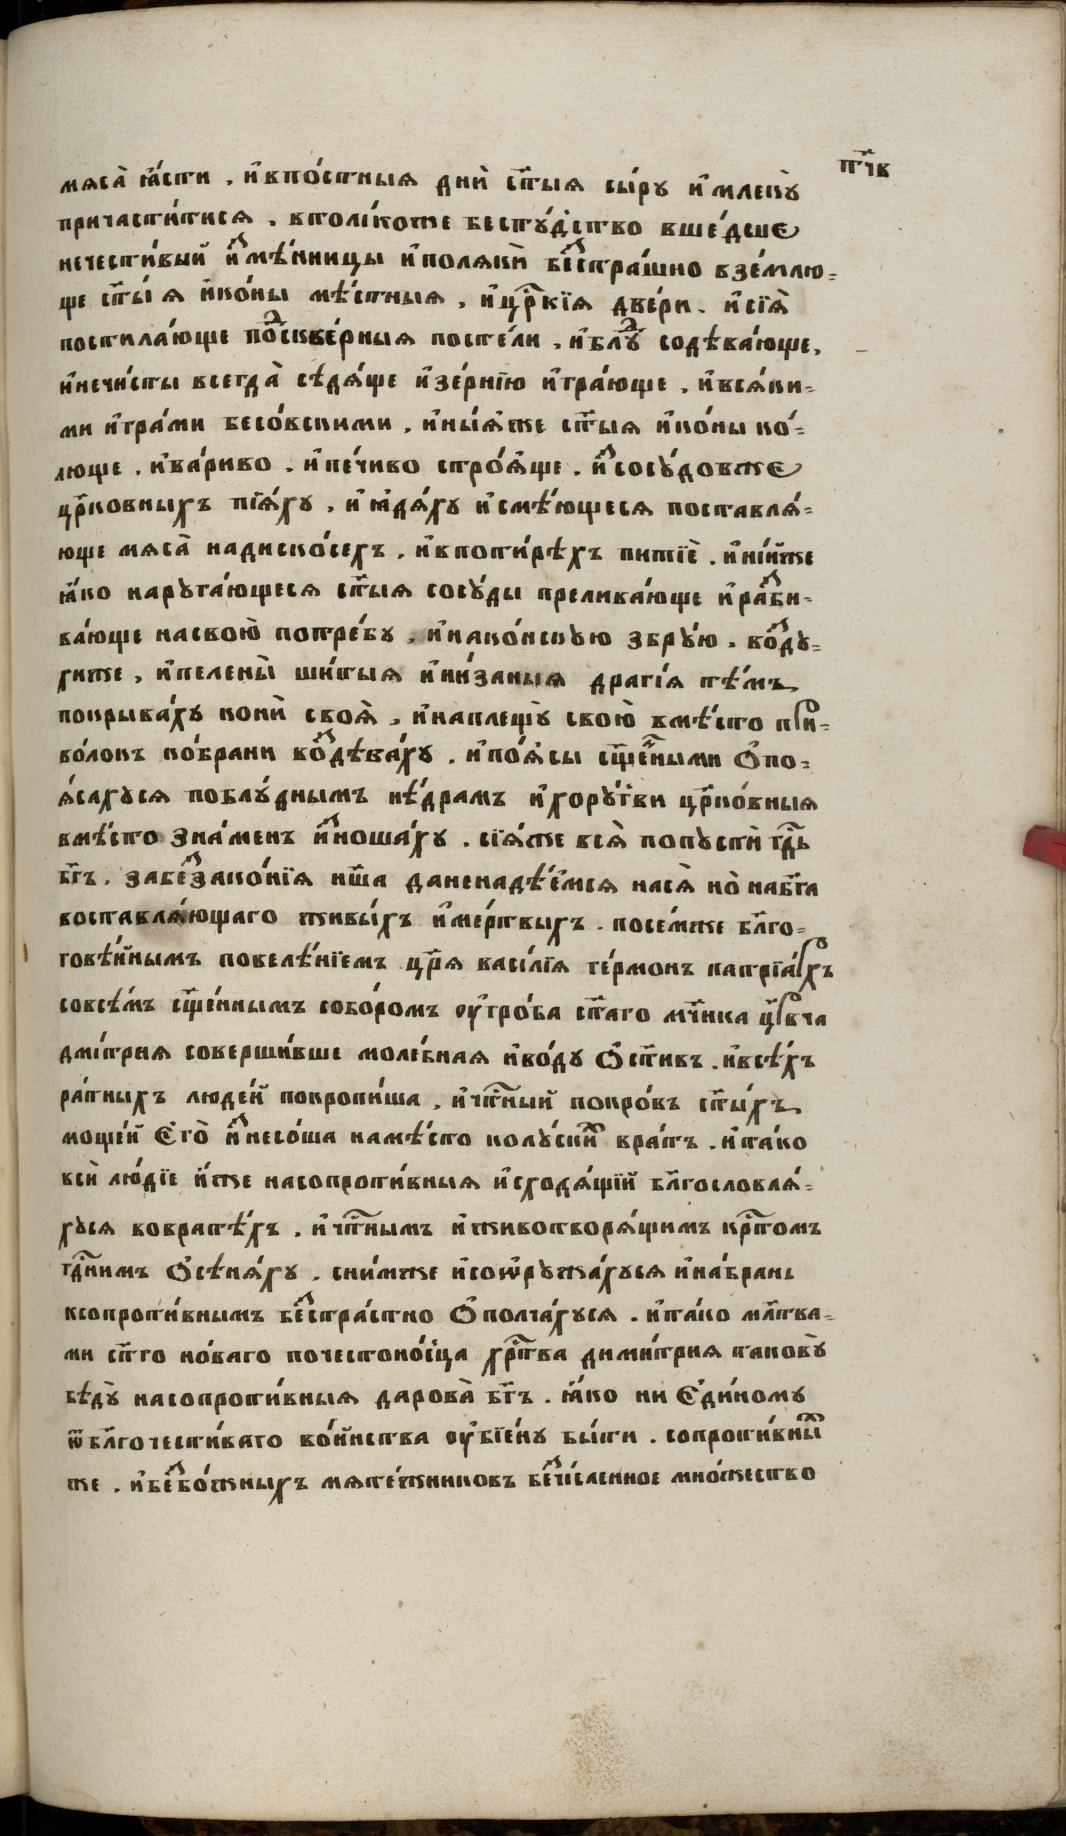 п҃чв
мяса̀ ꙗ҆́сти , и҆ впо́стныя днѝ ст҃ыя сы́ру и҆ млеку̀
причасти́тися , втоли́коже безсту́дство вше́дше
нечести́вый и҆змѣ́нницы и҆ полякѝ безстра́шно взе́млю-
ще ст҃ы́я и҆ко́ны мѣ́стныя , и҆ цр҃кїя две́ри . и҆ сїя̀
постила́юще подскве́рныя посте́ли , и҆ блꙋ́д содѣва́юще ,
и҆ нечи́сты всегда̀ сѣдя́ще и҆ зе́рнїю и҆гра́юще , и҆ вся́ки-
ми и҆гра́ми бесо́вскими , и҆ ны́яже ст҃ыя и҆ко́ны ко́-
люще , и҆ ва́риво , и҆ пе́чиво стро́яще . и҆з сосу́довже
цр҃ковныхъ пїя́ху , и҆ ꙗ҆дя́ху и҆ смѣ́ющеся поставля́-
юще мяса̀ надиско́сехъ , и҆ впоти́рѣхъ питїѐ . и҆ нїи́же
ꙗ҆́ко наруга́ющеся ст҃ыя сосу́ды прелива́юще и҆ разби-
ва́юще насвою̀ потре́бу , и҆ нако́нскую збру́ю , возду-
хиже , и҆ пелены̀ ши́тыя и҆ ни́заныя драгі́я тѣ́мъ
покрыва́ху конѝ своя̀ , и҆ наплещу̀ свою̀ вмѣ́сто при-
во́локъ ко́брани воздѣва́ху . и҆ по́ясы сщ҃е́нными ѻ҆по-
я́сахуся поблу́днымъ нѣ́драмъ и҆ хору́гви цр҃ко́вныя
вмѣ́сто зна́менъ и҆зноша́ху . сїя́же вся̀ попустѝ гд҃ь
бг҃ъ . забеззако́нїя нш҃а даненадѣ́емся нася̀ но̀ набг҃а
воставля́ющаго живы́хъ и҆ ме́ртвыхъ . посе́мже бл҃го-
говѣ́йнымъ повелѣ́нїемъ цр҃я васи́лїя ге́рмонъ патрїа́рхъ
совсѣ́мъ сщ҃е́ннымъ собо́ромъ ѹ҆ гро́ба ст҃аго мч҃нка цр҃вча
дми́трия соверши́вше моле́бная и҆ во́ду ѻ҆ст҃ивъ . и҆ всѣ́хъ
ра́тныхъ люде́й покропи́ша , и҆ чт҃ный покро́въ ст҃ы́хъ
моще́й є҆го̀ и҆знесо́ша намѣ́сто колу́скихъ вратъ . и҆ та́ко
всѝ лю́дїе и҆́же насопроти́вныя и҆сходя́щїй бл҃гословля́-
хуся вовратѣ́хъ , и҆ чт҃нымъ и҆ животворя́щимъ кр҃томъ
гд҃нимъ ѻ҆сѣня́ху . сни́мже и҆ соѡ҆ружа́хуся и҆ на́брань
ксопроти́внымъ безстра́стно ѻ҆полча́хуся . и҆ та́ко мл҃тва-
ми ст҃го но́ваго почестоно́сца хр҃тва дими́трия такову̀
бѣду̀ насопроти́вныя дарова̀ бг҃ъ . ꙗ҆́ко ни є҆ди́ному
ѿ бл҃гочести́ваго во́инства ѹ҆бїе́ну бы́ти . сопроти́вныхъ
же . и҆ безбо́жныхъ мяте́жниковъ безчи́сленное мно́жество